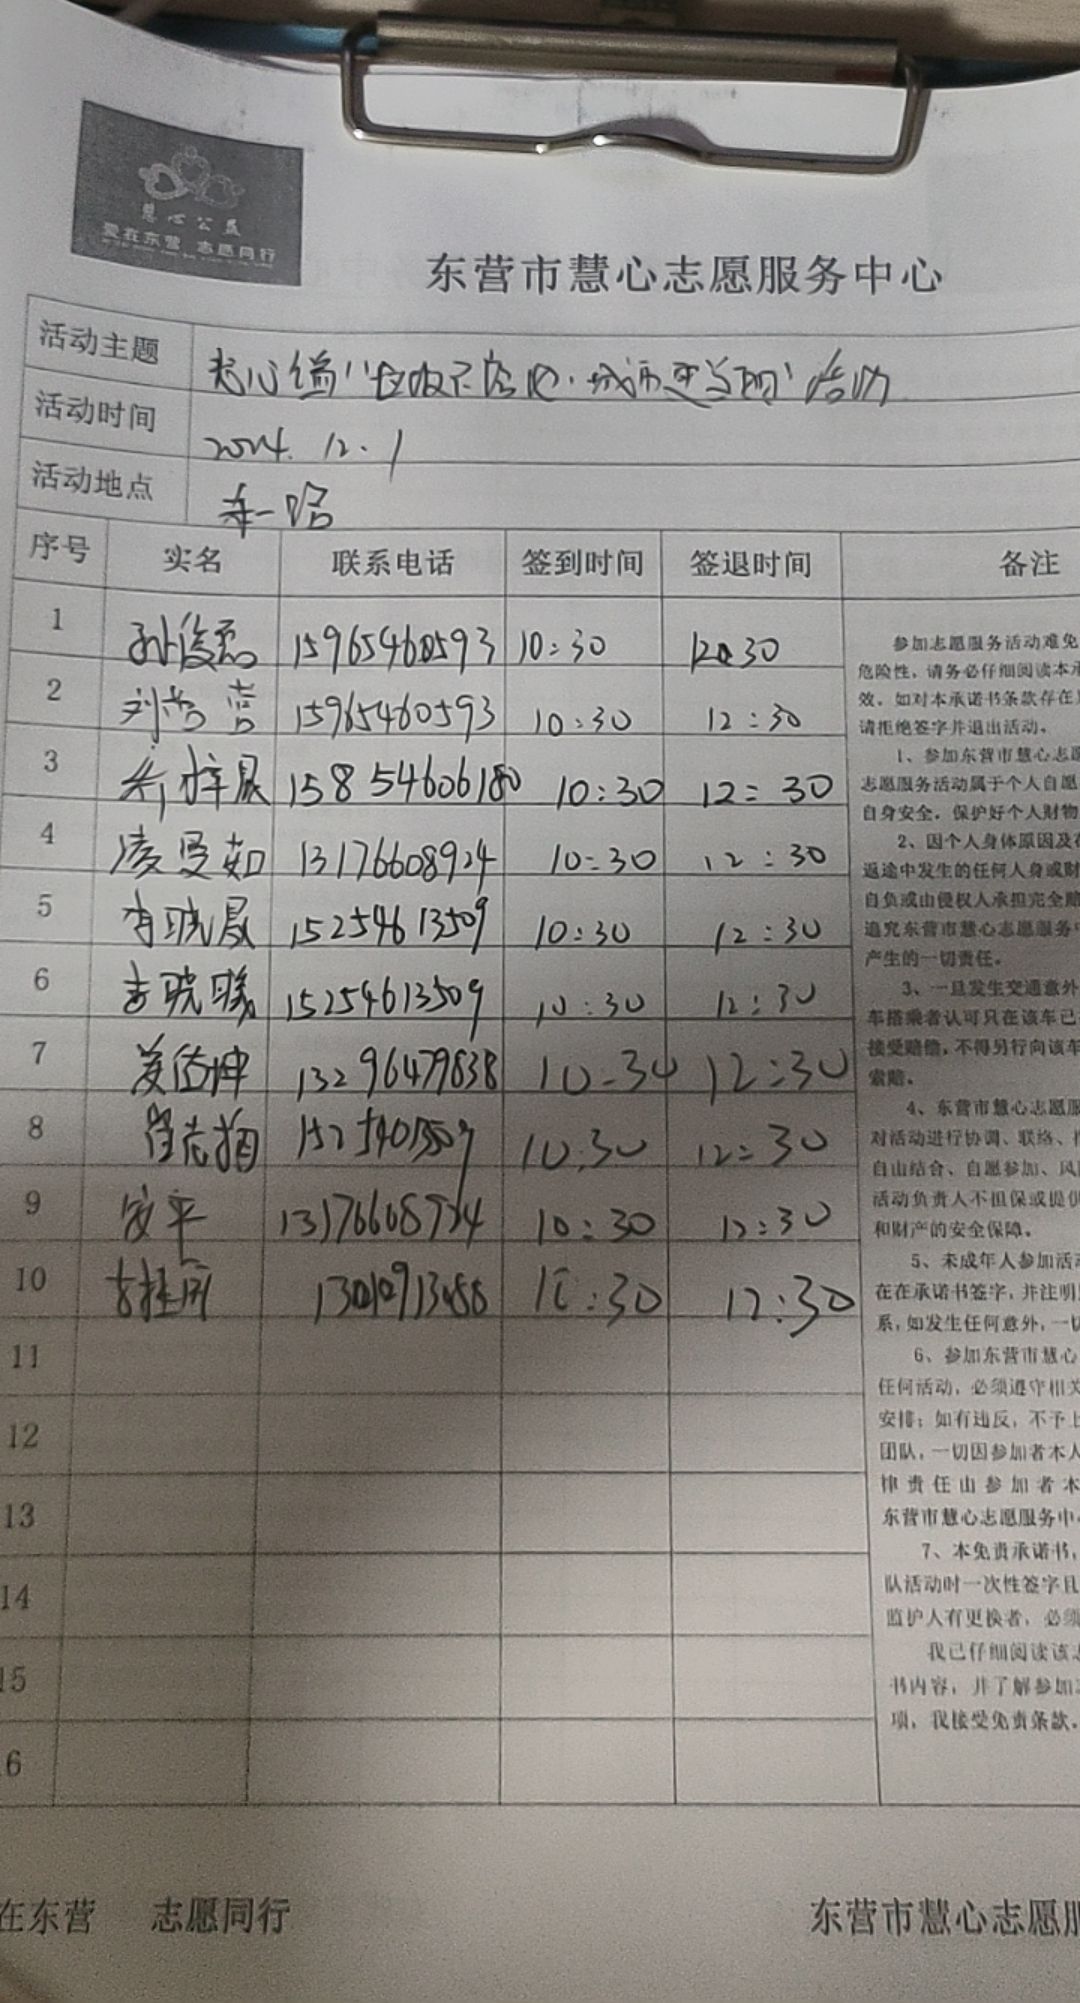 慧心公益
爱在东营 志愿同行
东营市慧心志愿服务中心
活动主题 活动
活动时间 2024.12.1
活动地点 东一路
序号 实名 联系电话 签到时间 签退时间 备注
1 15965460593 10:30 12:30
2 刘 营 15965460593 10:30 12:30
3 梓晨 15854606180 10:30 12:30
4 凌曼茹 13176608924 10:30 12:30
5 晓晨 15254613509 10:30 12:30
6 晓 15254613509 10:30 12:30
7 13296479838 10:30 12:30
8 10:30 12:30
9 安平 13176608924 10:30 12:30
10 10:30 12:30
11
12
13
14
15
6
参加志愿服务活动难免
危险性，请务必仔细阅读本承
效。如对本承诺书条款存在
请拒绝签字并退出活动。
1、参加东营市慧心志愿
志愿服务活动属于个人自愿
自身安全，保护好个人财物
2、因个人身体原因及在
返途中发生的任何人身或财
自负或由侵权人承担完全赔
追究东营市慧心志愿服务中
产生的一切责任。
3、一旦发生交通意外
车搭乘者认可只在该车已
接受赔偿，不得另行向该车
索赔。
4、东营市慧心志愿服
对活动进行协调、联络、
自由结合、自愿参加、风
活动负责人不担保或提供
和财产的安全保障。
5、未成年人参加活动
在在承诺书签字，并注明
系，如发生任何意外，一切
6、参加东营市慧心
任何活动，必须遵守相关
安排；如有违反，不予上
团队，一切因参加者本人
律责任由参加者本
东营市慧心志愿服务中
7、本免责承诺书，
队活动时一次性签字且
监护人有更换者，必须
我已仔细阅读该志
书内容，并了解参加
项，我接受免责条款。
在东营 志愿同行 东营市慧心志愿服